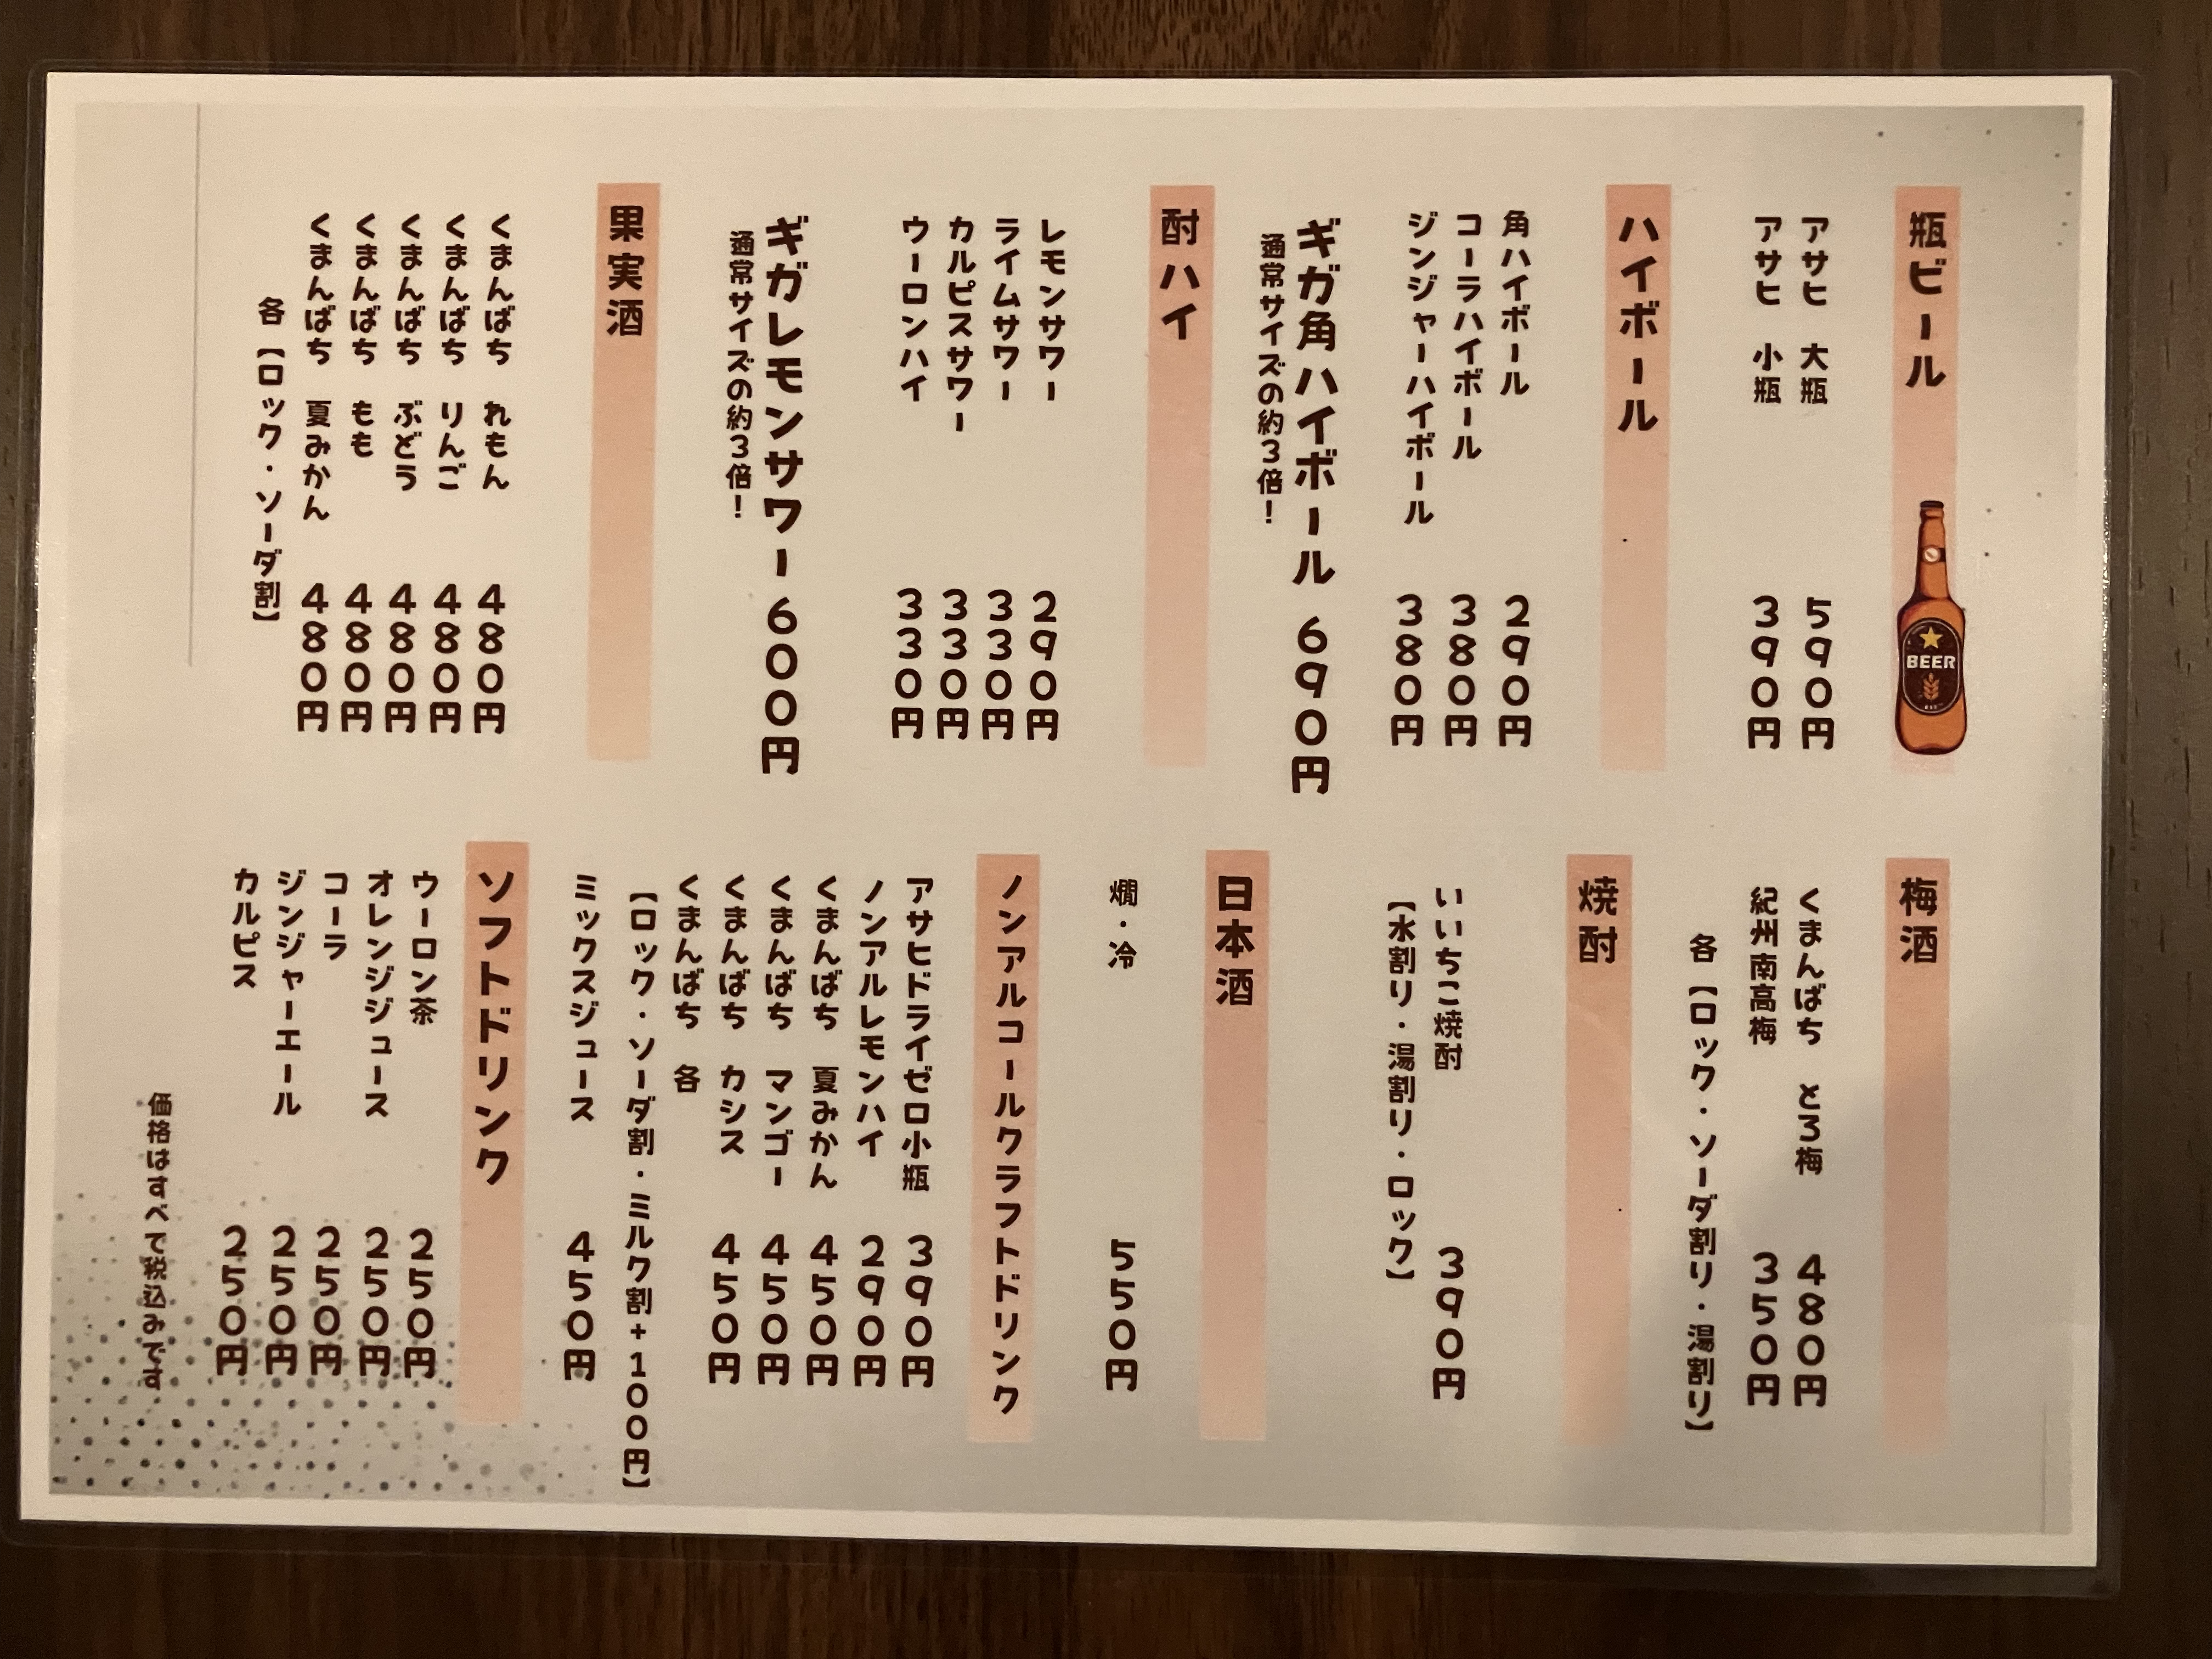 瓶ビール
アサヒ 大瓶 590円
アサヒ 小瓶 390円
BEER
ハイボール
角ハイボール 290円
コーラハイボール 380円
ジンジャーハイボール 380円
ギガ角ハイボール 690円
通常サイズの約3倍!
酎ハイ
レモンサワー 290円
ライムサワー 330円
カルピスサワー 330円
ウーロンハイ 330円
ギガレモンサワー 600円
通常サイズの約3倍!
果実酒
くまんばち れもん 480円
くまんばち りんご 480円
くまんばち ぶどう 480円
くまんばち もも 480円
くまんばち 夏みかん 480円
各【ロック・ソーダ割】
梅酒
くまんばち とろ梅 480円
紀州南高梅 350円
各【ロック・ソーダ割り・湯割り】
焼酎
いいちこ焼酎 390円
【水割り・湯割り・ロック】
日本酒
燗・冷 550円
ノンアルコールクラフトドリンク
アサヒドライゼロ小瓶 390円
ノンアルレモンハイ 290円
くまんばち 夏みかん 450円
くまんばち マンゴー 450円
くまんばち カシス 450円
くまんばち 各
【ロック・ソーダ割・ミルク割+100円】
ミックスジュース 450円
ソフトドリンク
ウーロン茶 250円
オレンジジュース 250円
コーラ 250円
ジンジャーエール 250円
カルピス 250円
価格はすべて税込みです